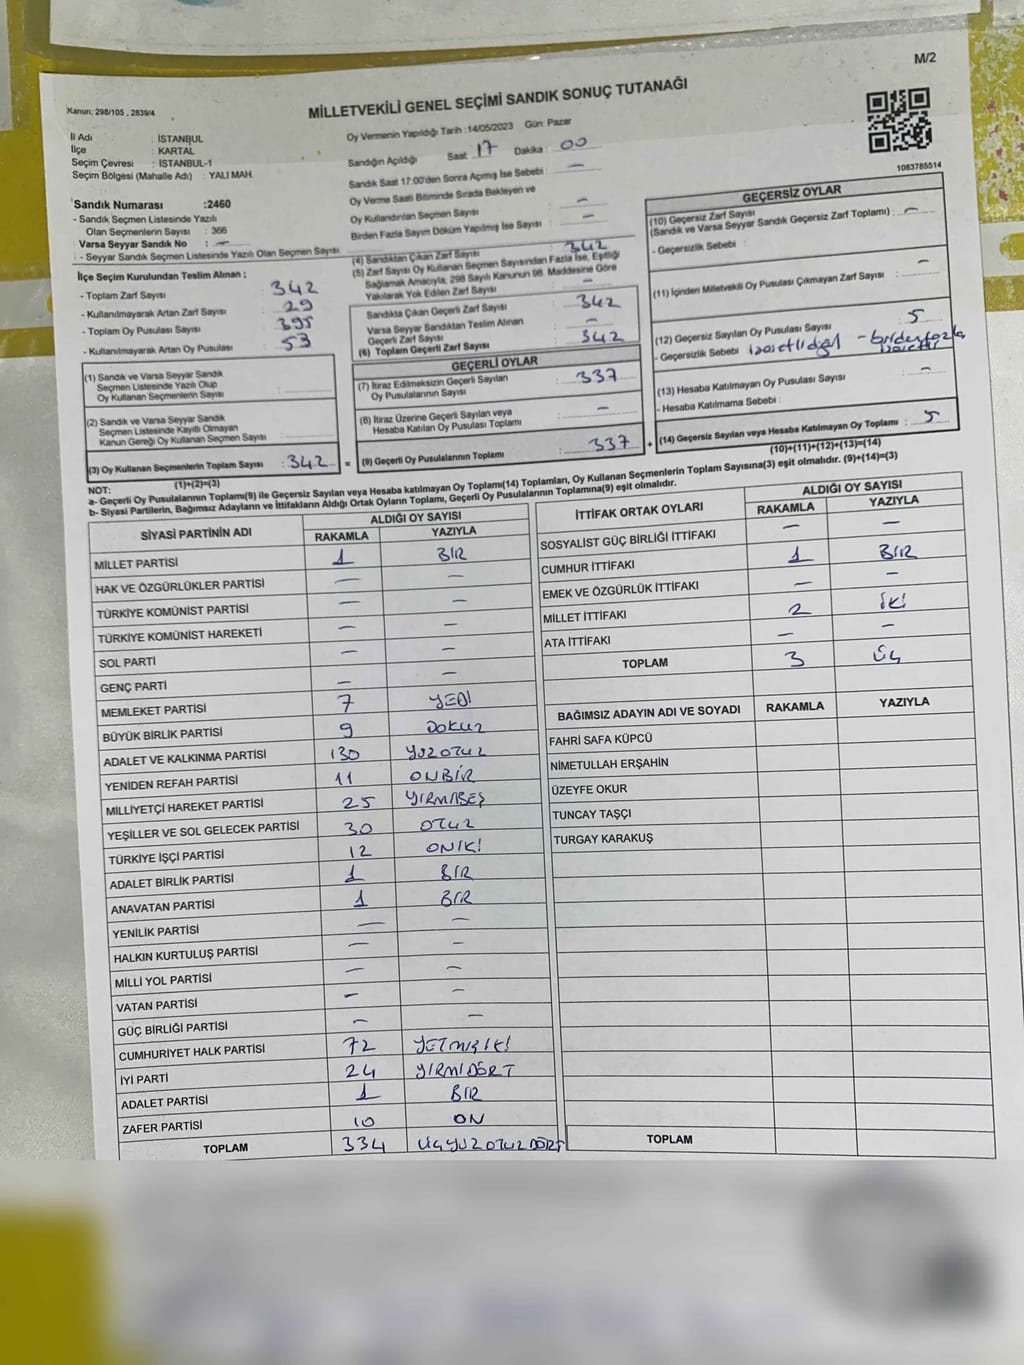 M/2
Kanun; 298/105 , 2839/4
MİLLETVEKİLİ GENEL SEÇİMİ SANDIK SONUÇ TUTANAĞI
1063785514
İl Adı : İSTANBUL
İlçe : KARTAL
Seçim Çevresi : İSTANBUL-1
Seçim Bölgesi (Mahalle Adı) : YALI MAH.
Oy Vermenin Yapıldığı Tarih :14/05/2023 Gün: Pazar
Sandığın Açıldığı Saat 17 Dakika : 00
Sandık Saat 17:00'den Sonra Açımış İse Sebebi : —
Oy Verme Saati Bitiminde Sırada Bekleyen ve
Oy Kullandırılan Seçmen Sayısı : —
Birden Fazla Sayım Döküm Yapılmış İse Sayısı : —
Sandık Numarası :2460
- Sandık Seçmen Listesinde Yazılı
Olan Seçmenlerin Sayısı : 366
- Varsa Seyyar Sandık No : —
- Seyyar Sandık Seçmen Listesinde Yazılı Olan Seçmen Sayısı:
İlçe Seçim Kurulundan Teslim Alınan ;
- Toplam Zarf Sayısı : 342
- Kullanılmayarak Artan Zarf Sayısı : 29
- Toplam Oy Pusulası Sayısı : 395
- Kullanılmayarak Artan Oy Pusulası : 53
(1) Sandık ve Varsa Seyyar Sandık
Seçmen Listesinde Yazılı Olup
Oy Kullanan Seçmenlerin Sayısı :
(2) Sandık ve Varsa Seyyar Sandık
Seçmen Listesinde Kayıtlı Olmayan
Kanun Gereği Oy Kullanan Seçmen Sayısı :
(3) Oy Kullanan Seçmenlerin Toplam Sayısı : 342
(1)+(2)=(3)
(4) Sandıktan Çıkan Zarf Sayısı : 342
(5) Zarf Sayısı Oy Kullanan Seçmen Sayısından Fazla İse, Eşitliği
Sağlamak Amacıyla, 298 Sayılı Kanunun 98. Maddesine Göre
Yakılarak Yok Edilen Zarf Sayısı : —
Sandıkta Çıkan Geçerli Zarf Sayısı : 342
Varsa Seyyar Sandıktan Teslim Alınan
Geçerli Zarf Sayısı : —
(6) Toplam Geçerli Zarf Sayısı : 342
GEÇERLİ OYLAR
(7) İtiraz Edilmeksizin Geçerli Sayılan
Oy Pusulalarının Sayısı : 337
(8) İtiraz Üzerine Geçerli Sayılan veya
Hesaba Katılan Oy Pusulası Toplamı : —
= (9) Geçerli Oy Pusulalarının Toplamı : 337
GEÇERSİZ OYLAR
(10) Geçersiz Zarf Sayısı
(Sandık ve Varsa Seyyar Sandık Geçersiz Zarf Toplamı) : —
- Geçersizlik Sebebi :
(11) İçinden Milletvekili Oy Pusulası Çıkmayan Zarf Sayısı : —
(12) Geçersiz Sayılan Oy Pusulası Sayısı : 5
- Geçersizlik Sebebi
(13) Hesaba Katılmayan Oy Pusulası Sayısı : —
- Hesaba Katılmama Sebebi :
+ (14) Geçersiz Sayılan veya Hesaba Katılmayan Oy Toplamı : 5
(10)+(11)+(12)+(13)=(14)
NOT:
a- Geçerli Oy Pusulalarının Toplamı(9) ile Geçersiz Sayılan veya Hesaba katılmayan Oy Toplamı(14) Toplamları, Oy Kullanan Seçmenlerin Toplam Sayısına(3) eşit olmalıdır. (9)+(14)=(3)
b- Siyasi Partilerin, Bağımsız Adayların ve İttifakların Aldığı Ortak Oyların Toplamı, Geçerli Oy Pusulalarının Toplamına(9) eşit olmalıdır.
SİYASİ PARTİNİN ADI
ALDIĞI OY SAYISI
RAKAMLA YAZIYLA
MİLLET PARTİSİ 1 BİR
HAK VE ÖZGÜRLÜKLER PARTİSİ — —
TÜRKİYE KOMÜNİST PARTİSİ — —
TÜRKİYE KOMÜNİST HAREKETİ — —
SOL PARTİ — —
GENÇ PARTİ — —
MEMLEKET PARTİSİ 7 YEDİ
BÜYÜK BİRLİK PARTİSİ 9 DOKUZ
ADALET VE KALKINMA PARTİSİ 130 YUZOTUZ
YENİDEN REFAH PARTİSİ 11 ONBİR
MİLLİYETÇİ HAREKET PARTİSİ 25 YIRMIBEŞ
YEŞİLLER VE SOL GELECEK PARTİSİ 30 OTUZ
TÜRKİYE İŞÇİ PARTİSİ 12 ONİKİ
ADALET BİRLİK PARTİSİ 1 BIR
ANAVATAN PARTİSİ 1 BIR
YENİLİK PARTİSİ — —
HALKIN KURTULUŞ PARTİSİ — —
MİLLİ YOL PARTİSİ — —
VATAN PARTİSİ — —
GÜÇ BİRLİĞİ PARTİSİ — —
CUMHURİYET HALK PARTİSİ 72 YETMIŞ IKI
İYİ PARTİ 24 YIRMIDÖRT
ADALET PARTİSİ 1 BIR
ZAFER PARTİSİ 10 ON
TOPLAM 334 ÜÇYUZOTUZDÖRT
İTTİFAK ORTAK OYLARI
ALDIĞI OY SAYISI
RAKAMLA YAZIYLA
SOSYALİST GÜÇ BİRLİĞİ İTTİFAKI — —
CUMHUR İTTİFAKI 1 BİR
EMEK VE ÖZGÜRLÜK İTTİFAKI — —
MİLLET İTTİFAKI 2 İKİ
ATA İTTİFAKI — —
TOPLAM 3 ÜÇ
BAĞIMSIZ ADAYIN ADI VE SOYADI RAKAMLA YAZIYLA
FAHRİ SAFA KÜPCÜ
NİMETULLAH ERŞAHİN
ÜZEYFE OKUR
TUNCAY TAŞÇI
TURGAY KARAKUŞ
TOPLAM